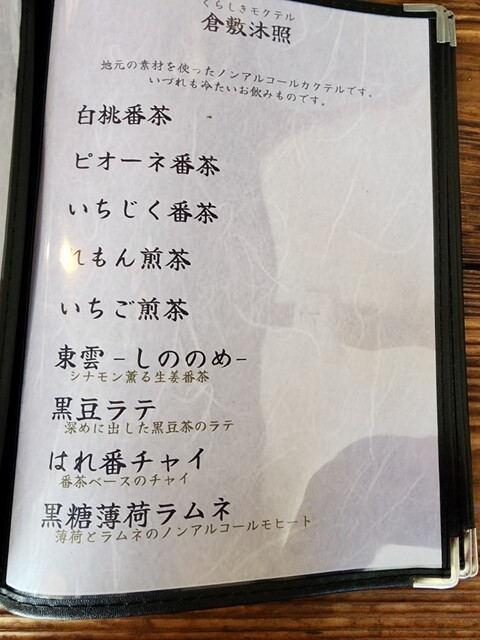 くらしきモクテル
倉敷沐照
地元の素材を使ったノンアルコールカクテルです。
いづれも冷たいお飲みものです。
白桃番茶
ピオーネ番茶
いちじく番茶
れもん煎茶
いちご煎茶
東雲-しののめ-
シナモン薫る生姜番茶
黒豆ラテ
深めに出した黒豆茶のラテ
はれ番チャイ
番茶ベースのチャイ
黒糖薄荷ラムネ
薄荷とラムネのノンアルコールモヒート